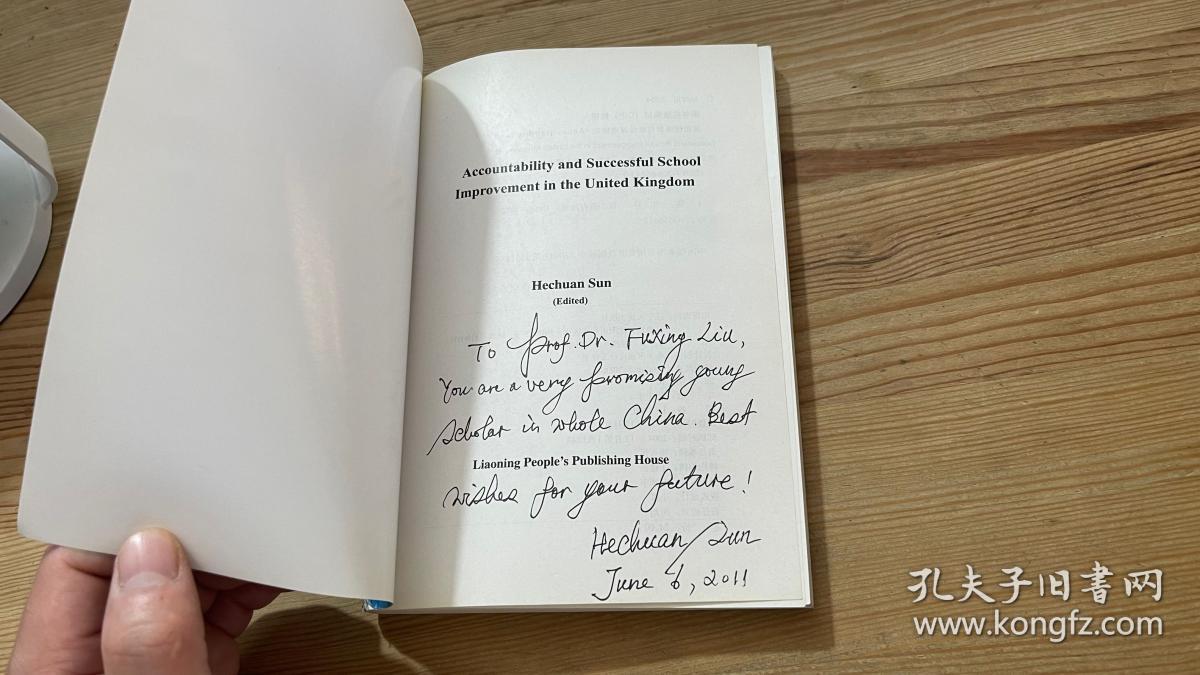 Accountability and Successful School
Improvement in the United Kingdom
Hechuan Sun
(Edited)
To Prof. Dr. Fuxing Liu,
You are a very promising young
scholar in whole China. Best
Liaoning People's Publishing House
wishes for your future!
Hechuan Sun
June 6, 2011
孔夫子旧书网
www.kongfz.com